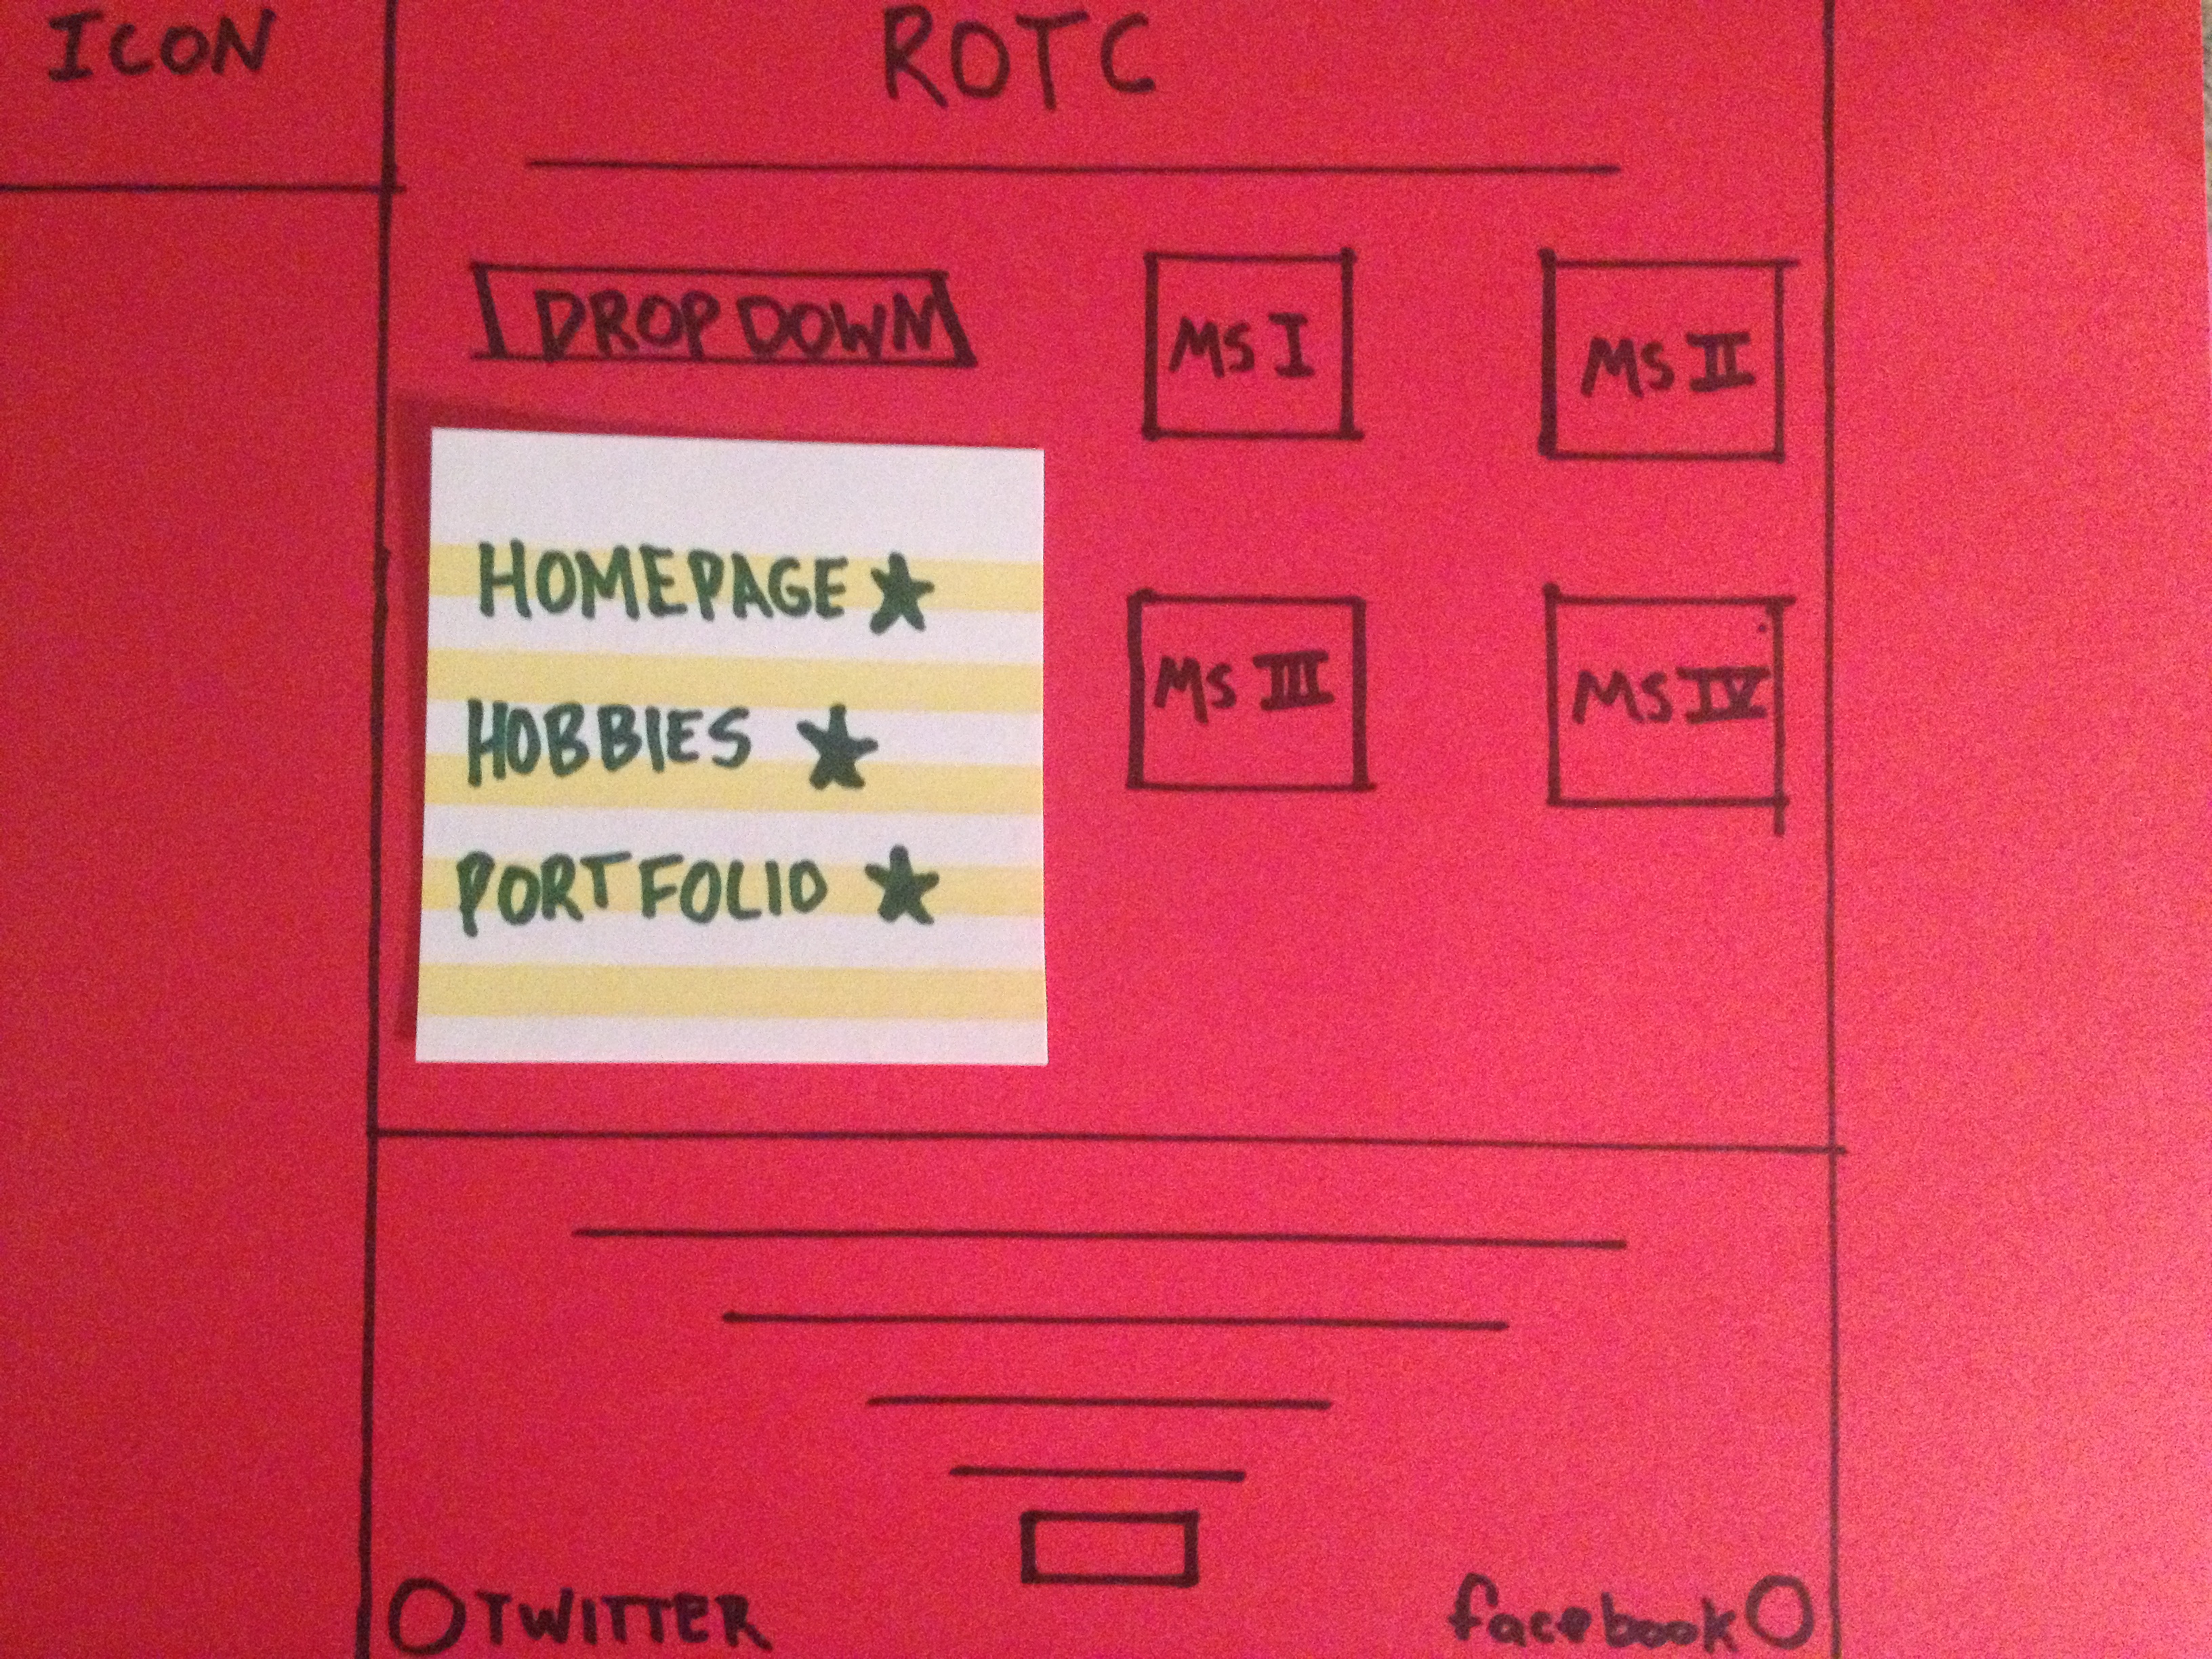 ICON
ROTC
DROPDOWN
MS I
MS II
HOMEPAGE
HOBBIES
PORTFOLIO
MS III
MS IV
TWITTER
facebook